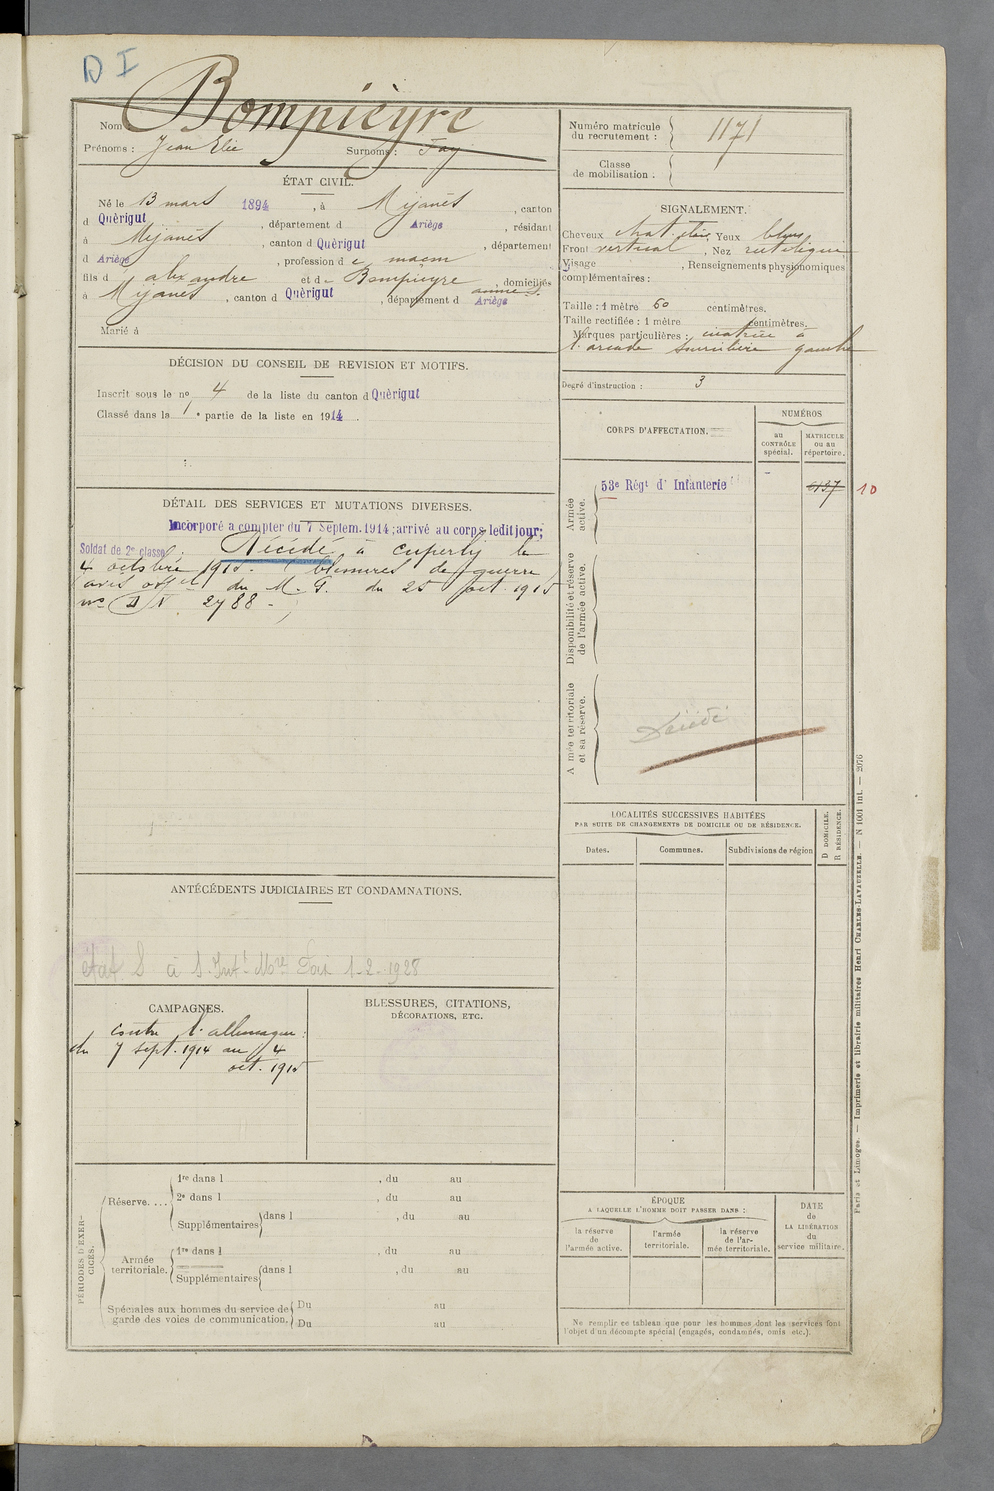 D I
Bompièyre
Nom :
Prénoms : Jean Elie Surnoms : Jay
Numéro matricule du recrutement : 1171
Classe de mobilisation :
ÉTAT CIVIL.
Né le 13 mars 1894, à Mijanès, canton
d Quérigut, département d Ariège, résidant
à Mijanès, canton d Quérigut, département
d Ariège, profession d e maçon
fils d Alexandre et d e Bompieyre anne, domiciliés
à Mijanès, canton d Quérigut, département d Ariège
Marié à
SIGNALEMENT.
Cheveux chat. clair, Yeux bleus
Front vertical, Nez rectiligne
Visage , Renseignements physionomiques
complémentaires :
Taille : 1 mètre 60 centimètres.
Taille rectifiée : 1 mètre centimètres.
Marques particulières : cicatrice à
l'arcade sourcilière gauche
Degré d'instruction : 3
DÉCISION DU CONSEIL DE REVISION ET MOTIFS.
Inscrit sous le no 4 de la liste du canton d Quérigut
Classé dans la 1e partie de la liste en 1914.
CORPS D'AFFECTATION.
NUMÉROS
au CONTRÔLE spécial.
MATRICULE ou au répertoire.
Armée active.
53e Régt d'Infanterie 6137 10
Disponibilité et réserve de l'armée active.
Armée territoriale et sa réserve.
Décédé
DÉTAIL DES SERVICES ET MUTATIONS DIVERSES.
Incorporé à compter du 7 Septem. 1914; arrivé au corps ledit jour;
Soldat de 2e classe. Décédé à Cuperly le
4 octobre 1915. (blessures de guerre)
(avis offel du M. G. du 25 oct. 1915
no DN 2788 - )
LOCALITÉS SUCCESSIVES HABITÉES
PAR SUITE DE CHANGEMENTS DE DOMICILE OU DE RÉSIDENCE.
Dates. Communes. Subdivisions de région D DOMICILE. R RÉSIDENCE.
ANTÉCÉDENTS JUDICIAIRES ET CONDAMNATIONS.
état S à S. Intt Mre Foix 1-2-1928
CAMPAGNES.
contre l'allemagne :
du 7 sept. 1914 au 4
oct. 1915
BLESSURES, CITATIONS,
DÉCORATIONS, ETC.
PÉRIODES D'EXERCICES.
Réserve....
1re dans l , du au
2e dans l , du au
Supplémentaires dans l , du au
Armée territoriale.
1re dans l , du au
Supplémentaires dans l , du au
Spéciales aux hommes du service de garde des voies de communication.
Du au
Du au
ÉPOQUE
A LAQUELLE L'HOMME DOIT PASSER DANS :
la réserve de l'armée active.
l'armée territoriale.
la réserve de l'armée territoriale.
DATE de LA LIBÉRATION du service militaire.
Ne remplir ce tableau que pour les hommes dont les services font
l'objet d'un décompte spécial (engagés, condamnés, omis etc.).
Paris et Limoges. — Imprimerie et librairie militaires Henri CHARLES-LAVAUZELLE. — N 1001 Int. — 2076